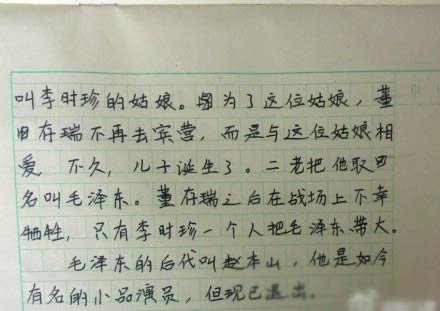 叫李时珍的姑娘。因为了这位姑娘，董
存瑞不再去宾营，而是与这位姑娘相
爱，不久，儿子诞生了。二老把他取
名叫毛泽东。董存瑞之后在战场上不幸
牺牲，只有李时珍一个人把毛泽东带大。
毛泽东的后代叫赵本山，他是如今
有名的小品演员，但现已退出。